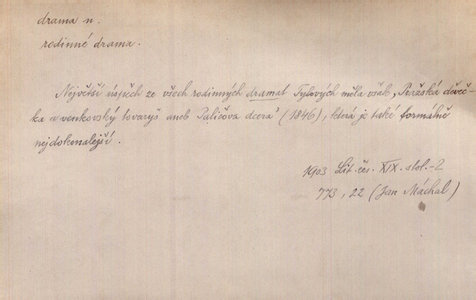 drama n.
rodinné drama.
Největší úspěch ze všech rodinných dramat Tylových měla však „Pražská děveč-
ka a venkovský tovaryš aneb Paličova dcera" (1846), která je také formálně
nejdokonalejší.
1903 Lit. čes. XIX. stol.-2
773, 22 (Jan Máchal)